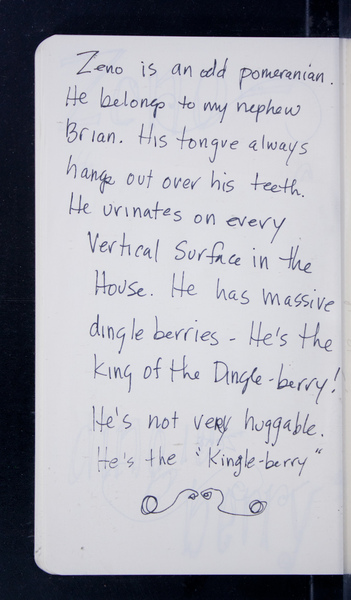 Zeno is an odd pomeranian.
He belongs to my nephew
Brian. His tongue always
hangs out over his teeth.
He urinates on every
Vertical Surface in the
House. He has massive
dingle berries - He's the
King of the Dingle-berry!
He's not very huggable.
He's the "Kingle-berry"